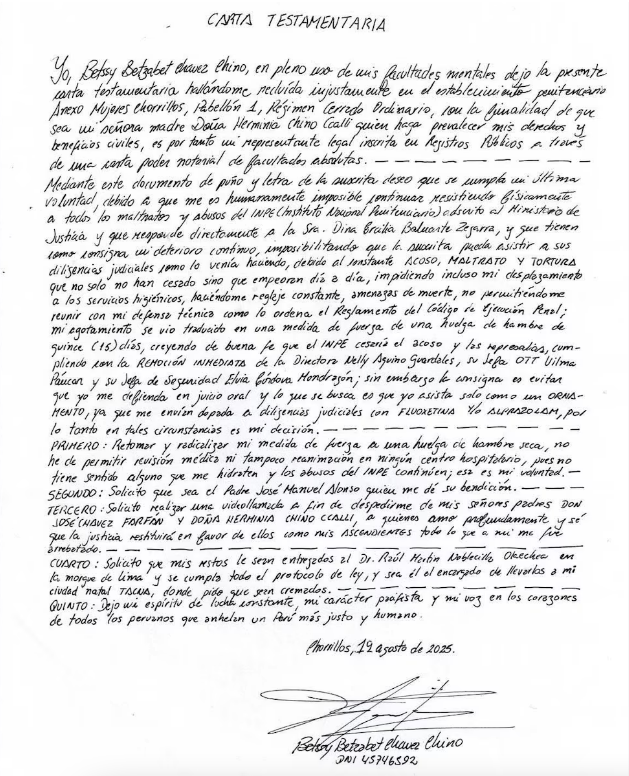 CARTA TESTAMENTARIA
Yo, Betssy Betzabet Chavez Chino, en pleno uso de mis facultades mentales dejo la presente
carta testamentaria hallándome recluida injustamente en el establecimiento penitenciario
Anexo Mujeres Chorrillos, Pabellón 1, Régimen Cerrado Ordinario, con la finalidad de que
sea mi señora madre Doña Herminia Chino Ccalli quien haga prevalecer mis derechos y
beneficios civiles, es por tanto mi representante legal inscrita en Registros Públicos a través
de una carta poder notarial de facultades absolutas.
Mediante este documento de puño y letra de la suscrita deseo que se cumpla mi última
voluntad, debido a que me es humanamente imposible continuar resistiendo físicamente
a todos los maltratos y abusos del INPE (Instituto Nacional Penitenciario) adscrito al Ministerio de
Justicia y que responde directamente a la Sra. Dina Ercilia Boluarte Zegarra, y que tienen
como consigna mi deterioro continuo, imposibilitando que la suscrita pueda asistir a sus
diligencias judiciales como lo venía haciendo, debido al constante ACOSO, MALTRATO Y TORTURA
que no solo no han cesado sino que empeoran día a día, impidiendo incluso mi desplazamiento
a los servicios higiénicos, haciéndome reglaje constante, amenazas de muerte, no permitiéndome
reunir con mi defensa técnica como lo ordena el Reglamento del Código de Ejecución Penal;
mi agotamiento se vio traducido en una medida de fuerza de una huelga de hambre de
quince (15) días, creyendo de buena fe que el INPE cesaría el acoso y las represalias, cum-
pliendo con la REMOCIÓN INMEDIATA de la Directora Nelly Aquino Guardales, su Jefa OTT Vilma
Páucar y su Jefa de Seguridad Elvia Córdova Mondragón; sin embargo la consigna es evitar
que yo me defienda en juicio oral y lo que se busca es que yo asista solo como un ORNA-
MENTO, ya que me envían dopada a diligencias judiciales con FLUOXETINA Y/O ALPRAZOLAM, por
lo tanto en tales circunstancias es mi decisión.
PRIMERO: Retomar y radicalizar mi medida de fuerza a una huelga de hambre seca, no
he de permitir revisión médica ni tampoco reanimación en ningún centro hospitalario, pues no
tiene sentido alguno que me hidraten y los abusos del INPE continúen; esa es mi voluntad.
SEGUNDO: Solicito que sea el Padre José Manuel Alonso quien me dé su bendición.
TERCERO: Solicito realizar una videollamada a fin de despedirme de mis señores padres DON
JOSÉ CHAVEZ FARFAN Y DOÑA HERMINIA CHINO CCALLI, a quienes amo profundamente y sé
que la justicia restituirá en favor de ellos como mis ASCENDIENTES todo lo que a mi me fue
arrebatado.
CUARTO: Solicito que mis restos le sean entregados al Dr. Raúl Martin Noblecilla Olaechea en
la morgue de Lima y se cumpla todo el protocolo de ley, y sea él el encargado de llevarlos a mi
ciudad natal TACNA, donde pido que sean cremados.
QUINTO: Dejo mi espíritu de lucha constante, mi carácter profista y mi voz en los corazones
de todos los peruanos que anhelan un Perú más justo y humano.
Chorrillos, 19 agosto de 2025.
Betssy Betzabet Chavez Chino
DNI 45746592